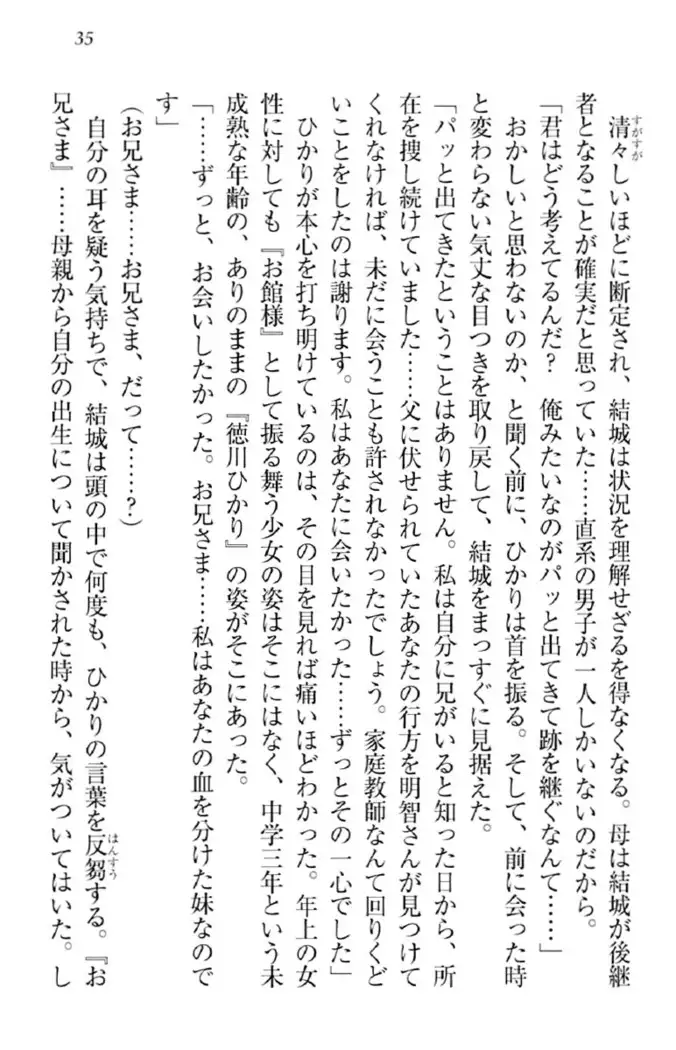 35
清々しいほどに断定され、結城は状況を理解せざるを得なくなる。母は結城が後継
者となることが確実だと思っていた……直系の男子が一人しかいないのだから。
「君はどう考えてるんだ？　俺みたいなのがパッと出てきて跡を継ぐなんて……」
おかしいと思わないのか、と聞く前に、ひかりは首を振る。そして、前に会った時
と変わらない気丈な目つきを取り戻して、結城をまっすぐに見据えた。
「パッと出てきたということはありません。私は自分に兄がいると知った日から、所
在を捜し続けていました……父に伏せられていたあなたの行方を明智さんが見つけて
くれなければ、未だに会うことも許されなかったでしょう。家庭教師なんて回りくど
いことをしたのは謝ります。私はあなたに会いたかった……ずっとその一心でした」
ひかりが本心を打ち明けているのは、その目を見れば痛いほどわかった。年上の女
性に対しても『お館様』として振る舞う少女の姿はそこにはなく、中学三年という未
成熟な年齢の、ありのままの『徳川ひかり』の姿がそこにあった。
「……ずっと、お会いしたかった。お兄さま……私はあなたの血を分けた妹なので
す」
（お兄さま……お兄さま、だって……？）
自分の耳を疑う気持ちで、結城は頭の中で何度も、ひかりの言葉を反芻する。『お
兄さま』……母親から自分の出生について聞かされた時から、気がついてはいた。し
すがすが
はんすう